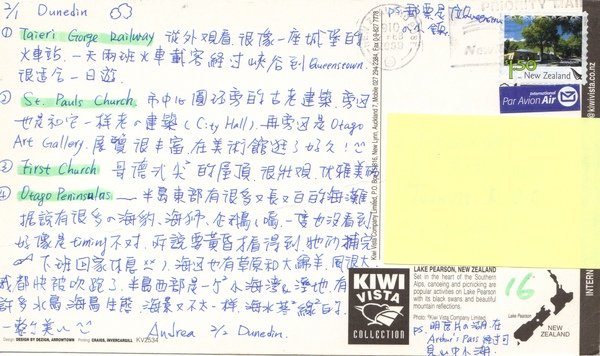 2/1 Dunedin
① Taieri Gorge Railway 從外觀看, 很像一座城堡的
火車站, 一天兩班火車載客經過峽谷到Queenstown
很適合一日遊.
② St. Pauls Church 市中心圓環旁的古老建築, 旁邊
也是和它一樣老的建築 (City Hall), 再旁邊是Otago
Art Gallery, 展覽很豐富, 在美術館逛了好久!
③ First Church 哥德式尖的屋頂, 很壯觀, 優雅
④ Otago Peninsulas — 半島東部有很多又長又白的海灘
據說有很多的海豹、海狗、企鵝(嘴, 一隻也沒看到
好像是timing不對, 所說要黃昏才看得到他們捕
下班回家休息), 海邊也有草原和大綿羊, 風很大
我都快被吹跑了. 半島西部是一個個小海灣, 濕地, 有
許多水鳥、海鳥生態, 海景又不太一樣, 海水是綠
Andrea 2/2 Dunedin.
Design: DESIGN BY DESIGN, ARROWTOWN
Printing: CRAIGS, INVERCARGILL
KV2534
Kiwi Vista Company Limited, P.O. Box
New Lynn, Auckland 7, Mobile 027 294-2384, Fax 0-9-627 7778
@kiwivista.co.nz
1.50
New Zealand
International
Par Avion Air
KIWI
VISTA
COLLECTION
LAKE PEARSON, NEW ZEALAND
Set in the heart of the Southern
Alps, canoeing and picnicking are
popular activities on Lake Pearson
with its black swans and beautiful
mountain reflections.
Photo: ©Kiwi Vista Company Limited
16
Lake Pearson
NEW
ZEALAND
PS. 明信片的湖在
Arthur's Pass